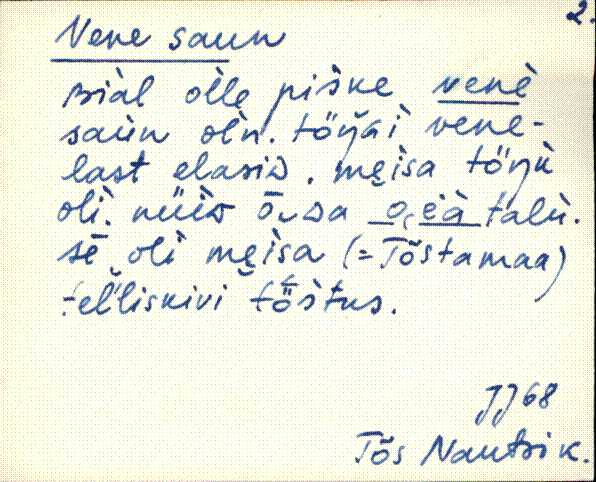 2.
Vene saun
siàl òlle pìske venè
saùn olǹ. töŋ̀ài vene-
last elasiD. mẹ̀isa töŋ̀ù
olì. nüìD ō, sa o, eà talù.
sē oli mẹ̀isa (= Tõstamaa)
telliskivi tö̀stus.
JJ68
Tõs Nautsi k.